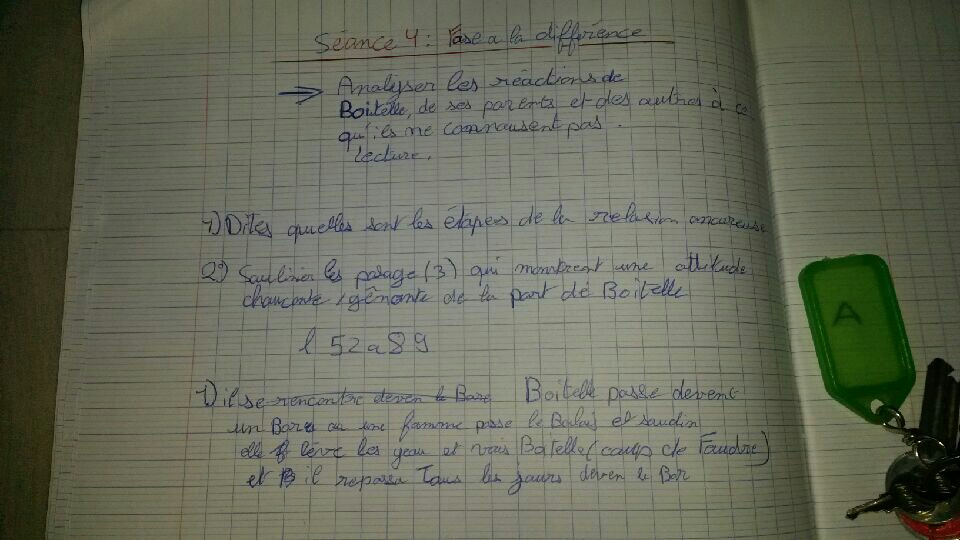 Séance 4 : Fase a la différence
Analyser les réactions de
Boitelle, de ses parents et des autres à ce
qu'ils ne connaissent pas.
Lecture.
1) Dites quelles sont les étapes de la relasion amoureuse
2°) Souliniér les pasage (3) qui momtrent une attitude
choncante, gênante de la part de Boitelle
l 52 a 89
1) il se rencontre deven le Bare Boitelle passe devent
un Bare ou une famme passe le Balais et soudin
elle lève les yeau et vois Boitelle (coup de Foudre)
et il repasea Tous les jours deven le Bar
A